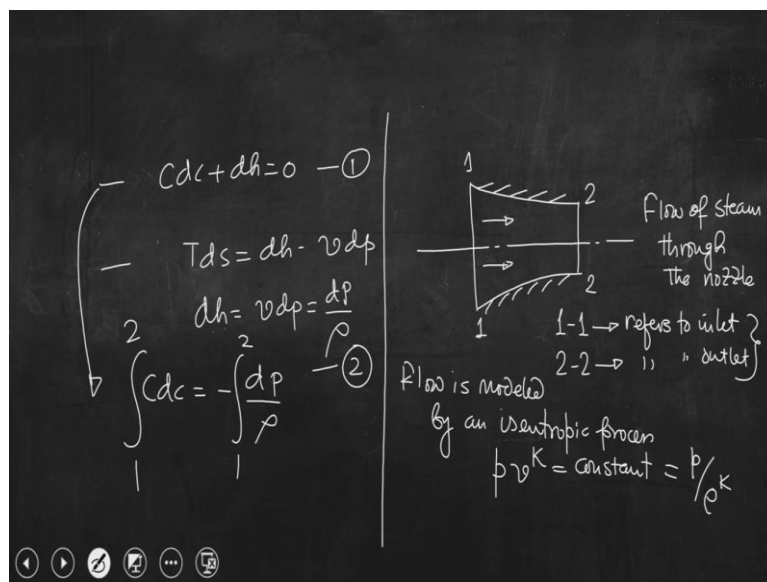 Cdc + dh = 0 — ①
Tds = dh - vdp
dh = vdp = dp/ρ
∫₁² Cdc = -∫₁² dp/ρ — ②
1
2
2
1
Flow of steam
through
the nozzle
1-1 → refers to inlet
2-2 → 〃 〃 outlet
Flow is modeled
by an isentropic process
pv^K = constant = p/ρ^K